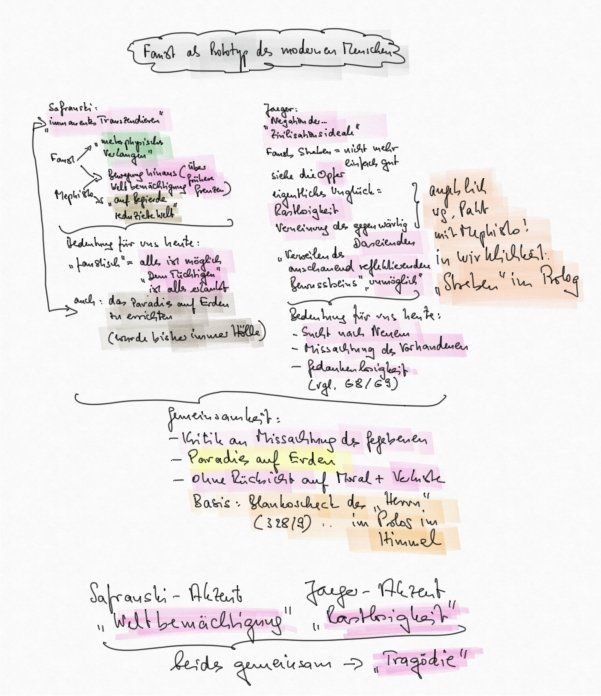 Faust als Prototyp des modernen Menschen
Safranski:
"immanentes Transzendieren"
"metaphysisches
Verlangen"
Faust
Bewegung hinaus (über
Weltbemächtigung frühere
Grenzen)
Mephisto
"auf Begierde
reduzierte Welt"
Bedeutung für uns heute:
"faustisch" = alles ist möglich
"Dem Tüchtigen"
ist alles erlaubt
auch: das Paradies auf Erden
zu errichten
(wurde bisher immer Hölle)
Jaeger:
"Negation der...
"Zivilisationsideale"
Fausts Streben = nicht mehr
einfach gut
siehe die Opfer
eigentliche Unglück =
Rastlosigkeit
Verneinung des gegenwärtig
Daseienden
"Verweilen des
anschauend reflektierenden
Bewusstseins" unmöglich"
angeblich
wg. Pakt
mit Mephisto!
in Wirklichkeit:
"Streben" im Prolog
Bedeutung für uns heute:
- Sucht nach Neuem
- Missachtung des Vorhandenen
- Gedankenlosigkeit
(vgl. 68/69)
Gemeinsamkeit:
- Kritik an Missachtung des Gegebenen
- Paradies auf Erden
- ohne Rücksicht auf Moral + Verluste
Basis: Blankoscheck des "Herrn"
(328/9) .. im Prolog im
Himmel
Safranski-Akzent
"Weltbemächtigung"
Jaeger-Akzent
"Rastlosigkeit"
beides gemeinsam → "Tragödie"